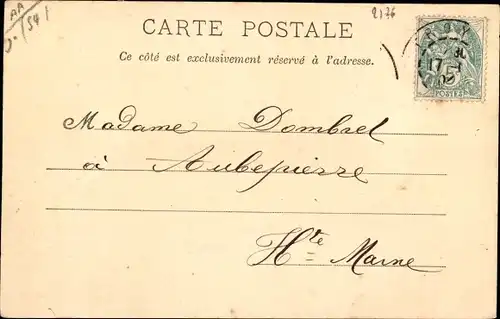 AA
2176
CARTE POSTALE
Ce côté est exclusivement réservé à l'adresse.
17
POSTES
Madame Dombret
à Aubepierre
Hte Marne